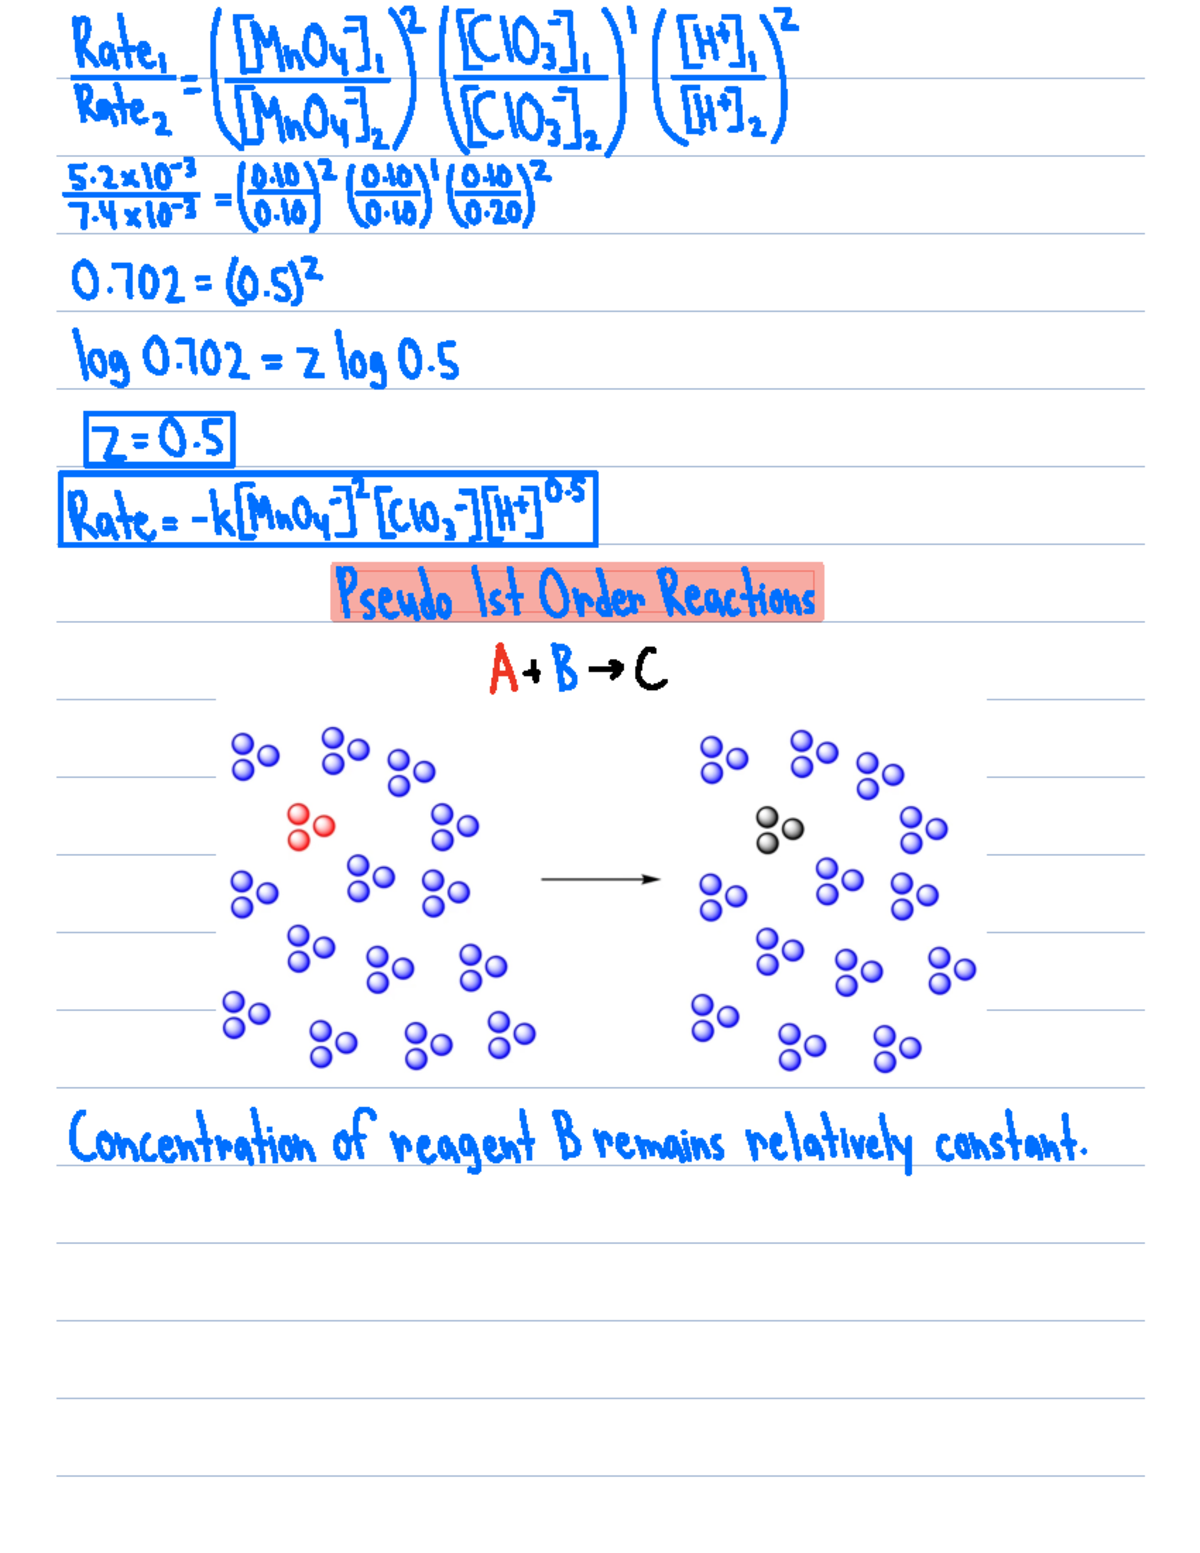 Rate₁/Rate₂ = ([MnO₄⁻]₁/[MnO₄⁻]₂)² ([ClO₃⁻]₁/[ClO₃⁻]₂)¹ ([H⁺]₁/[H⁺]₂)^z
5.2×10⁻³/7.4×10⁻³ = (0.10/0.10)² (0.10/0.10)¹ (0.10/0.20)^z
0.702 = (0.5)^z
log 0.702 = z log 0.5
z = 0.5
Rate = -k[MnO₄⁻]²[ClO₃⁻][H⁺]^0.5
Pseudo 1st Order Reactions
A + B → C
Concentration of reagent B remains relatively constant.